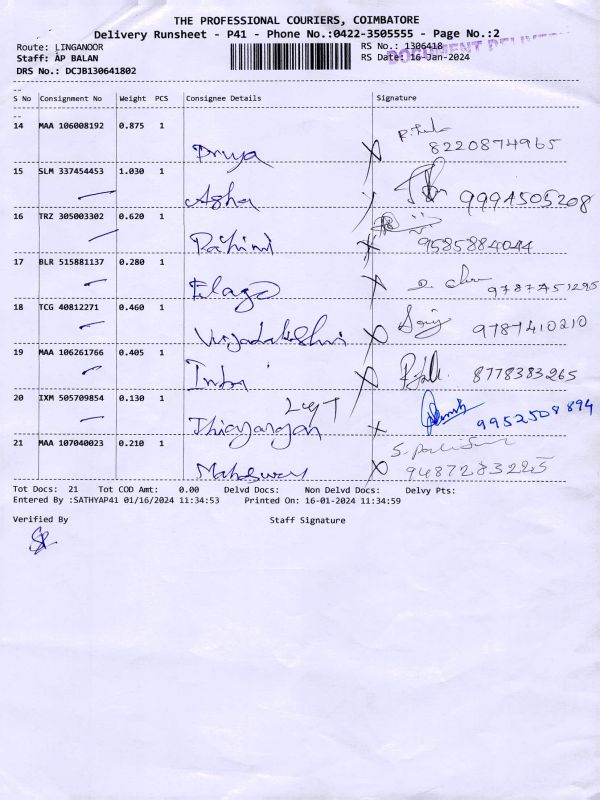 THE PROFESSIONAL COURIERS, COIMBATORE
Delivery Runsheet - P41 - Phone No.:0422-3505555 - Page No.:2
Route: LINGANOOR RS No.: 1306418
Staff: AP BALAN RS Date: 16-Jan-2024
DOCUMENT DELIVERY
DRS No.: DCJB130641802
S No Consignment No Weight PCS Consignee Details Signature
14 MAA 106008192 0.875 1
Priya 8220874965
15 SLM 337454453 1.030 1
Asha 9994505208
16 TRZ 305003302 0.620 1
Rahini 9585884044
17 BLR 515881137 0.280 1
Elago 9787751295
18 TCG 40812271 0.460 1
Vijayalakshmi 9787410210
19 MAA 106261766 0.405 1
Inba 8778383265
20 IXM 505709854 0.130 1
Thiayargan 9952508894
21 MAA 107040023 0.210 1
Maheswary 9487283225
Tot Docs: 21 Tot COD Amt: 0.00 Delvd Docs: Non Delvd Docs: Delvy Pts:
Entered By :SATHYAP41 01/16/2024 11:34:53 Printed On: 16-01-2024 11:34:59
Verified By Staff Signature